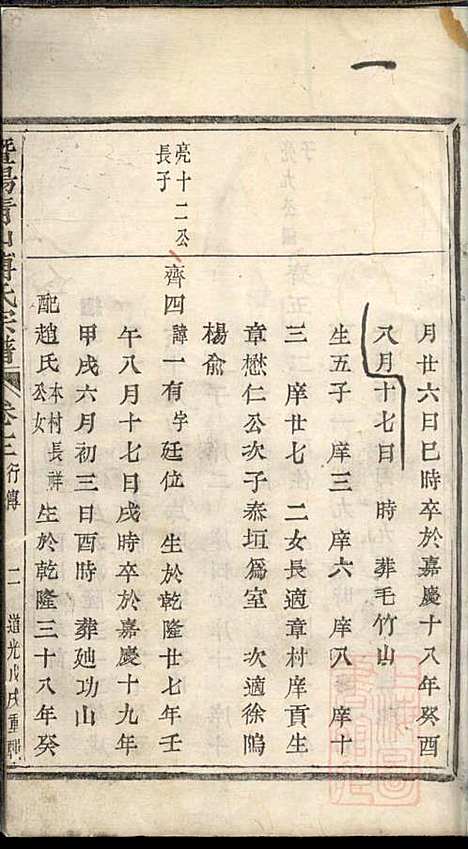 一
月廿六日巳時卒於嘉慶十八年癸酉
八月十七日　時　葬毛竹山
生五子一庠三　庠六　庠八　庠十
三　庠廿七　二女長適章村庠貢生
章懋仁公次子泰垣爲室　次適徐鴿
楊俞
亮十二公
長子
齊四諱一有字廷位　生於乾隆廿七年壬
午八月十七日戌時卒於嘉慶十九年
甲戌六月初三日酉時　葬𨑳功山
配趙氏本村長祥公女　生於乾隆三十八年癸
暨陽青山傅氏宗譜　卷十二　行傳　二　道光戊戌重輯